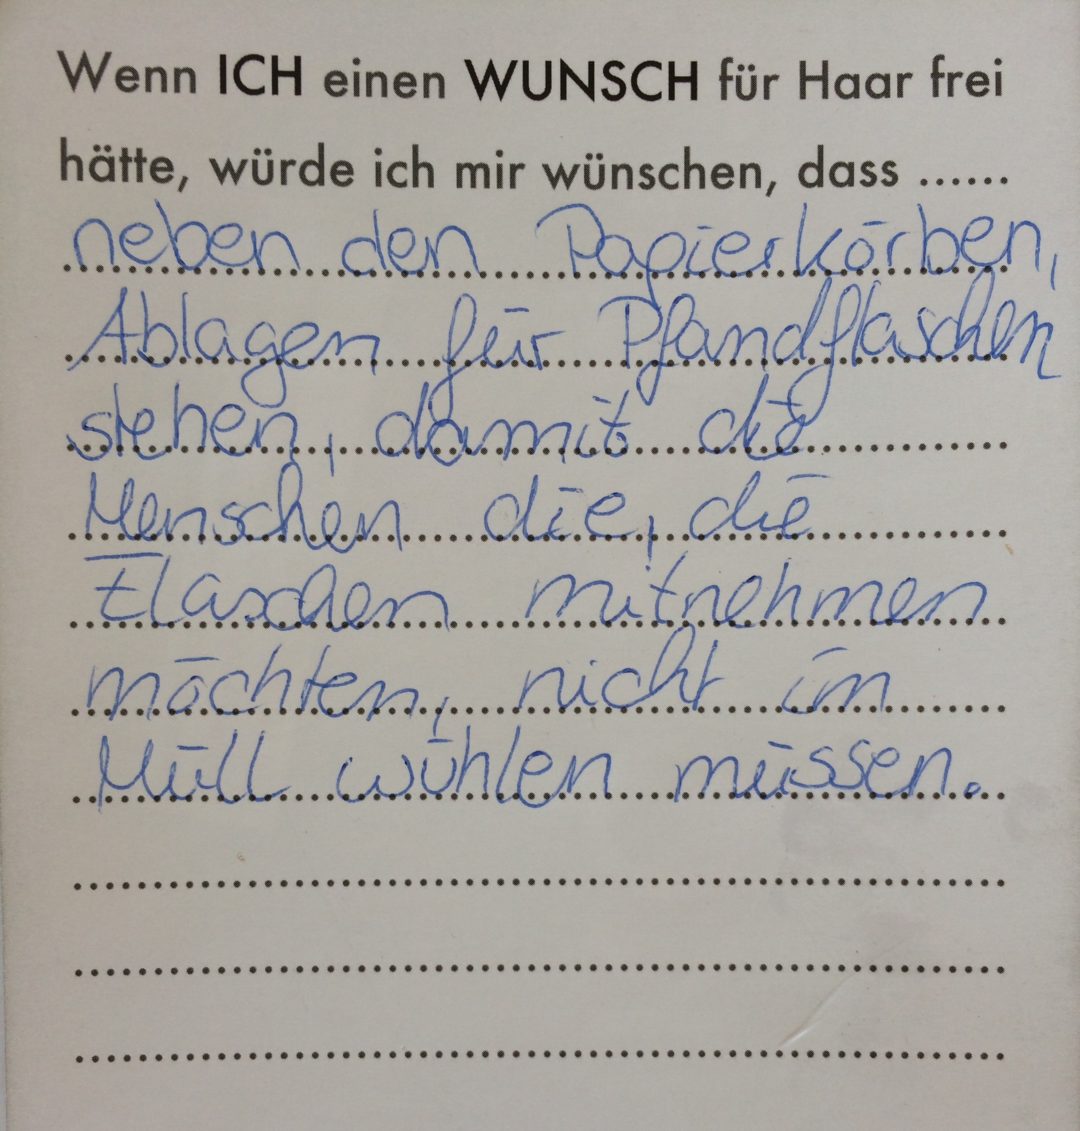 Wenn ICH einen WUNSCH für Haar frei
hätte, würde ich mir wünschen, dass ......
neben den Papierkörben,
Ablagen für Pfandflaschen
stehen, damit die
Menschen die, die
Flaschen mitnehmen
möchten, nicht im
Müll wühlen müssen.